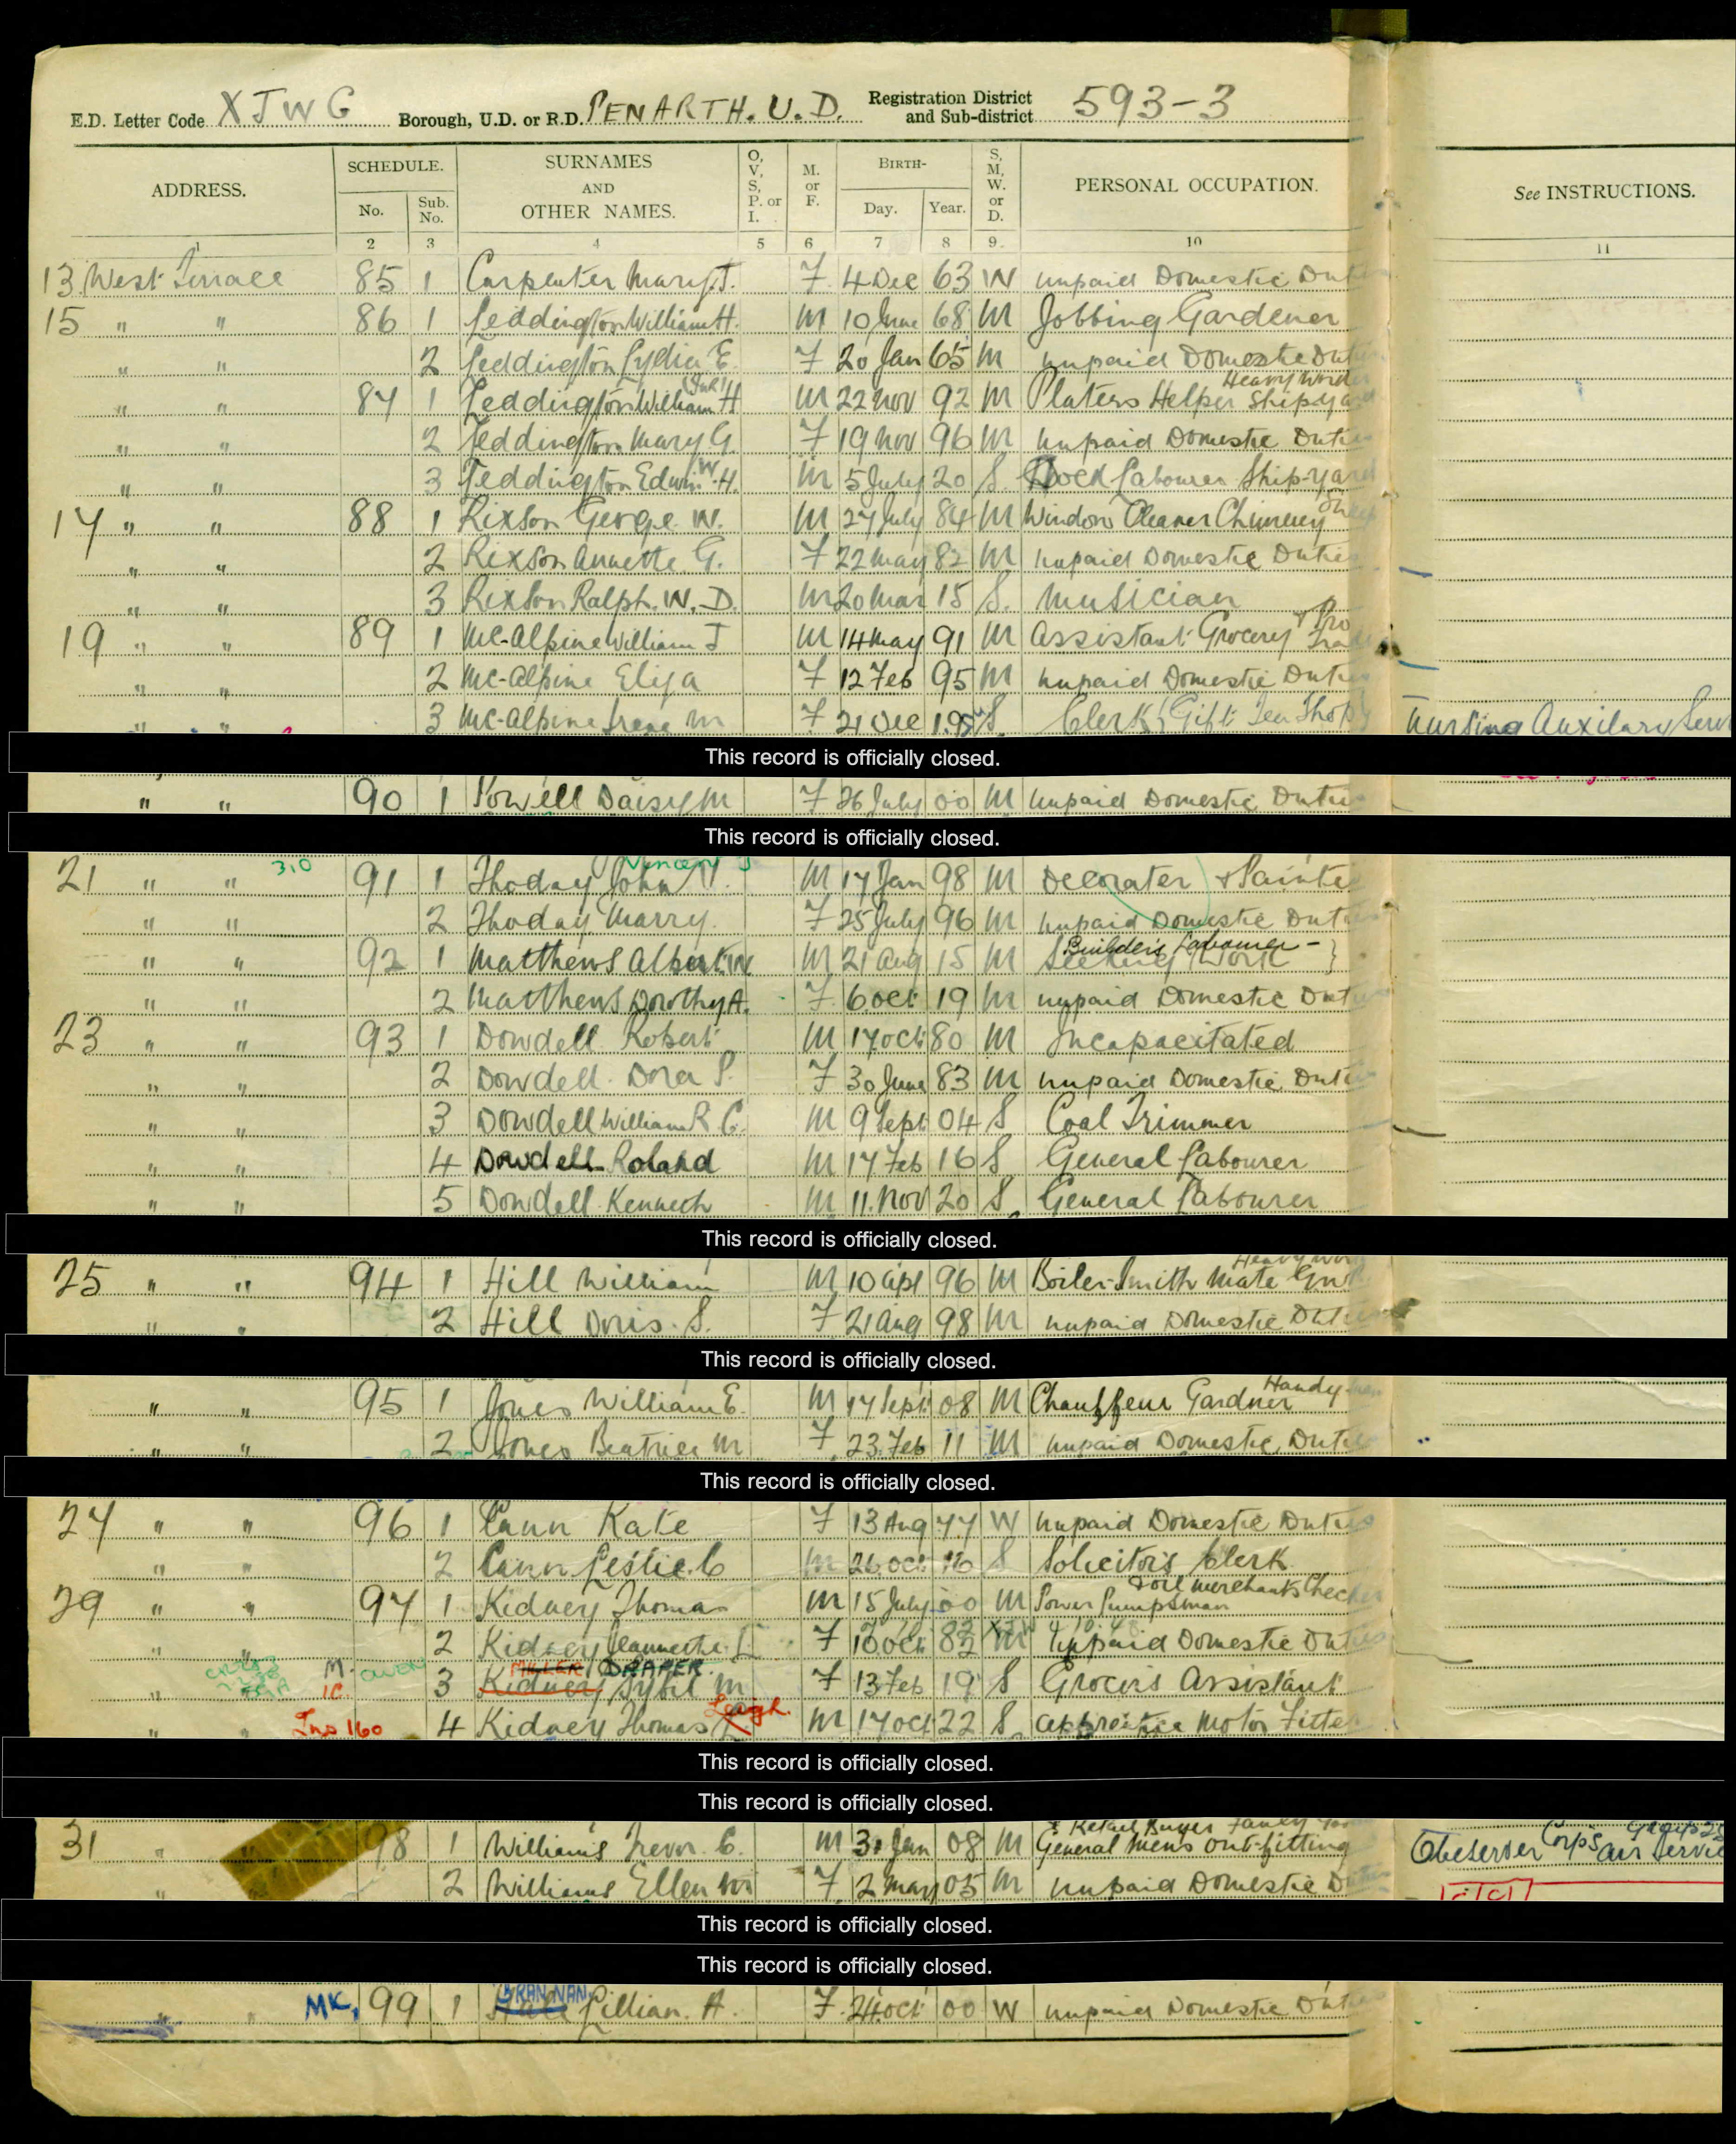 E.D. Letter Code XJWG Borough, U.D. or R.D. PENARTH. U.D. Registration District and Sub-district 593-3
ADDRESS. SCHEDULE. No. Sub. No. SURNAMES AND OTHER NAMES. O, V, S, P. or I. M. or F. BIRTH- Day. Year. S, M, W. or D. PERSONAL OCCUPATION. See INSTRUCTIONS.
1 2 3 4 5 6 7 8 9 10 11
13 West Terrace 85 1 Carpenter Mary J. F 4 Dec 63 W Unpaid Domestic
15 " " 86 1 Teddington William H. M 10 June 68 M Jobbing Gardener
" " 2 Teddington Lydia E F 20 Jan 65 M Unpaid Domestic
" " 87 1 Teddington William H (Jnr) M 22 Nov 92 M Platers Helper Shipyard Heavy Worker
" " 2 Teddington Mary G. F 19 Nov 96 M Unpaid Domestic Duties
" " 3 Teddington Edwin W. H. M 5 July 20 S. Dock Labourer Ship-yard
17 " " 88 1 Rixson George W. M 27 July 84 M Window Cleaner Chimney Sweep
" " 2 Rixson Annette G. F 22 May 82 M Unpaid Domestic Duties
" " 3 Rixson Ralph. W. D. M 20 Mar 15 S. Musician
19 " " 89 1 Mc-Alpine William J M 14 May 91 M Assistant Grocery & Pro
" " 2 Mc-Alpine Eliza F 12 Feb 95 M Unpaid Domestic Duties
" " 3 Mc-Alpine Irene M F 21 Dec 19 S. Clerk (Gift Tea Shop) Nursing Auxilary Serv
This record is officially closed.
" " 90 1 Powell Daisy M F 26 July 00 M Unpaid Domestic Duties
This record is officially closed.
21 " " 3,0 91 1 Thoday John V. Vincent J M 17 Jan 98 M Decorater & Painter
" " 2 Thoday Marry. F 25 July 96 M Unpaid Domestic Duties
" " 92 1 Matthews Albert W M 21 Aug 15 M Builders Labourer - Seeking Work }
" " 2 Matthews Dorothy A. F 6 Oct 19 M Unpaid Domestic Duties
23 " " 93 1 Dowdell Robert M 17 Oct 80 M Incapacitated
" " 2 Dowdell. Dora F 30 June 83 M Unpaid Domestic Duties
" " 3 Dowdell William R C. M 9 Sept 04 S Coal Trimmer
" " 4 Dowdell Roland M 17 Feb 16 S General Labourer
" " 5 Dowdell Kenneth M 11 Nov 20 S General Labourer
This record is officially closed.
25 " " 94 1 Hill William M 10 Apl 96 M Boiler-Smith Mate Heavy
" " 2 Hill Doris. S. F 21 Aug 98 M Unpaid Domestic Duties
This record is officially closed.
" " 95 1 Jones William E. M 17 Sept 08 M Chauffeur Gardner Handy
" " 2 Jones Beatrice M F 23 Feb 11 M Unpaid Domestic Duties
This record is officially closed.
27 " " 96 1 Cann Kate F 13 Aug 77 W Unpaid Domestic Duties
" " 2 Cann Leslie. C M 26 Oct 16 S Solicitors Clerk
29 " " 97 1 Kidney Thomas M 15 July 00 M Power Pumpsman & oil merchants Checker
" " 2 Kidney Jeannette L F 10 Oct 82 M Unpaid Domestic Duties
" M. OWEN 3 Kidney MILLER DRAPER. Sybil M F 13 Feb 19 S Grocers Assistant
" " Ins 160 4 Kidney Thomas Leigh. M 17 Oct 22 S Apprentice Motor Fitter
This record is officially closed.
This record is officially closed.
31 " " 98 1 Williams Trevor. C. M 31 Jan 08 M General Mens Out-fitting & Retail Buyer Fancy Observer Corps Air Service
" 2 Williams Ellen M F 2 May 05 M Unpaid Domestic Duties
This record is officially closed.
This record is officially closed.
" " MK, 99 1 BRANNAN Lillian. A. F 24 Oct 00 W Unpaid Domestic Duties